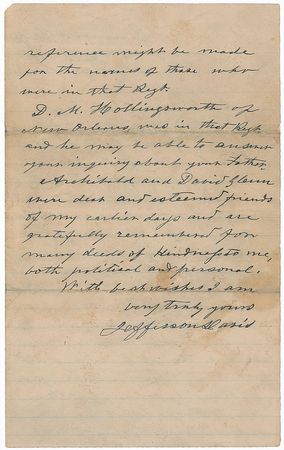 reference might be made
for the names of those who
were in that Regt.
D. M. Hollingsworth of
New Orleans, was in that Regt
and he may be able to answer
your inquiry about your Father.
Archibald and David Glenn
were dear and esteemed friends
of my earlier days and are
gratefully remembered for
many deeds of kindness to me,
both political and personal.
With best wishes I am
very truly yours
Jefferson Davis